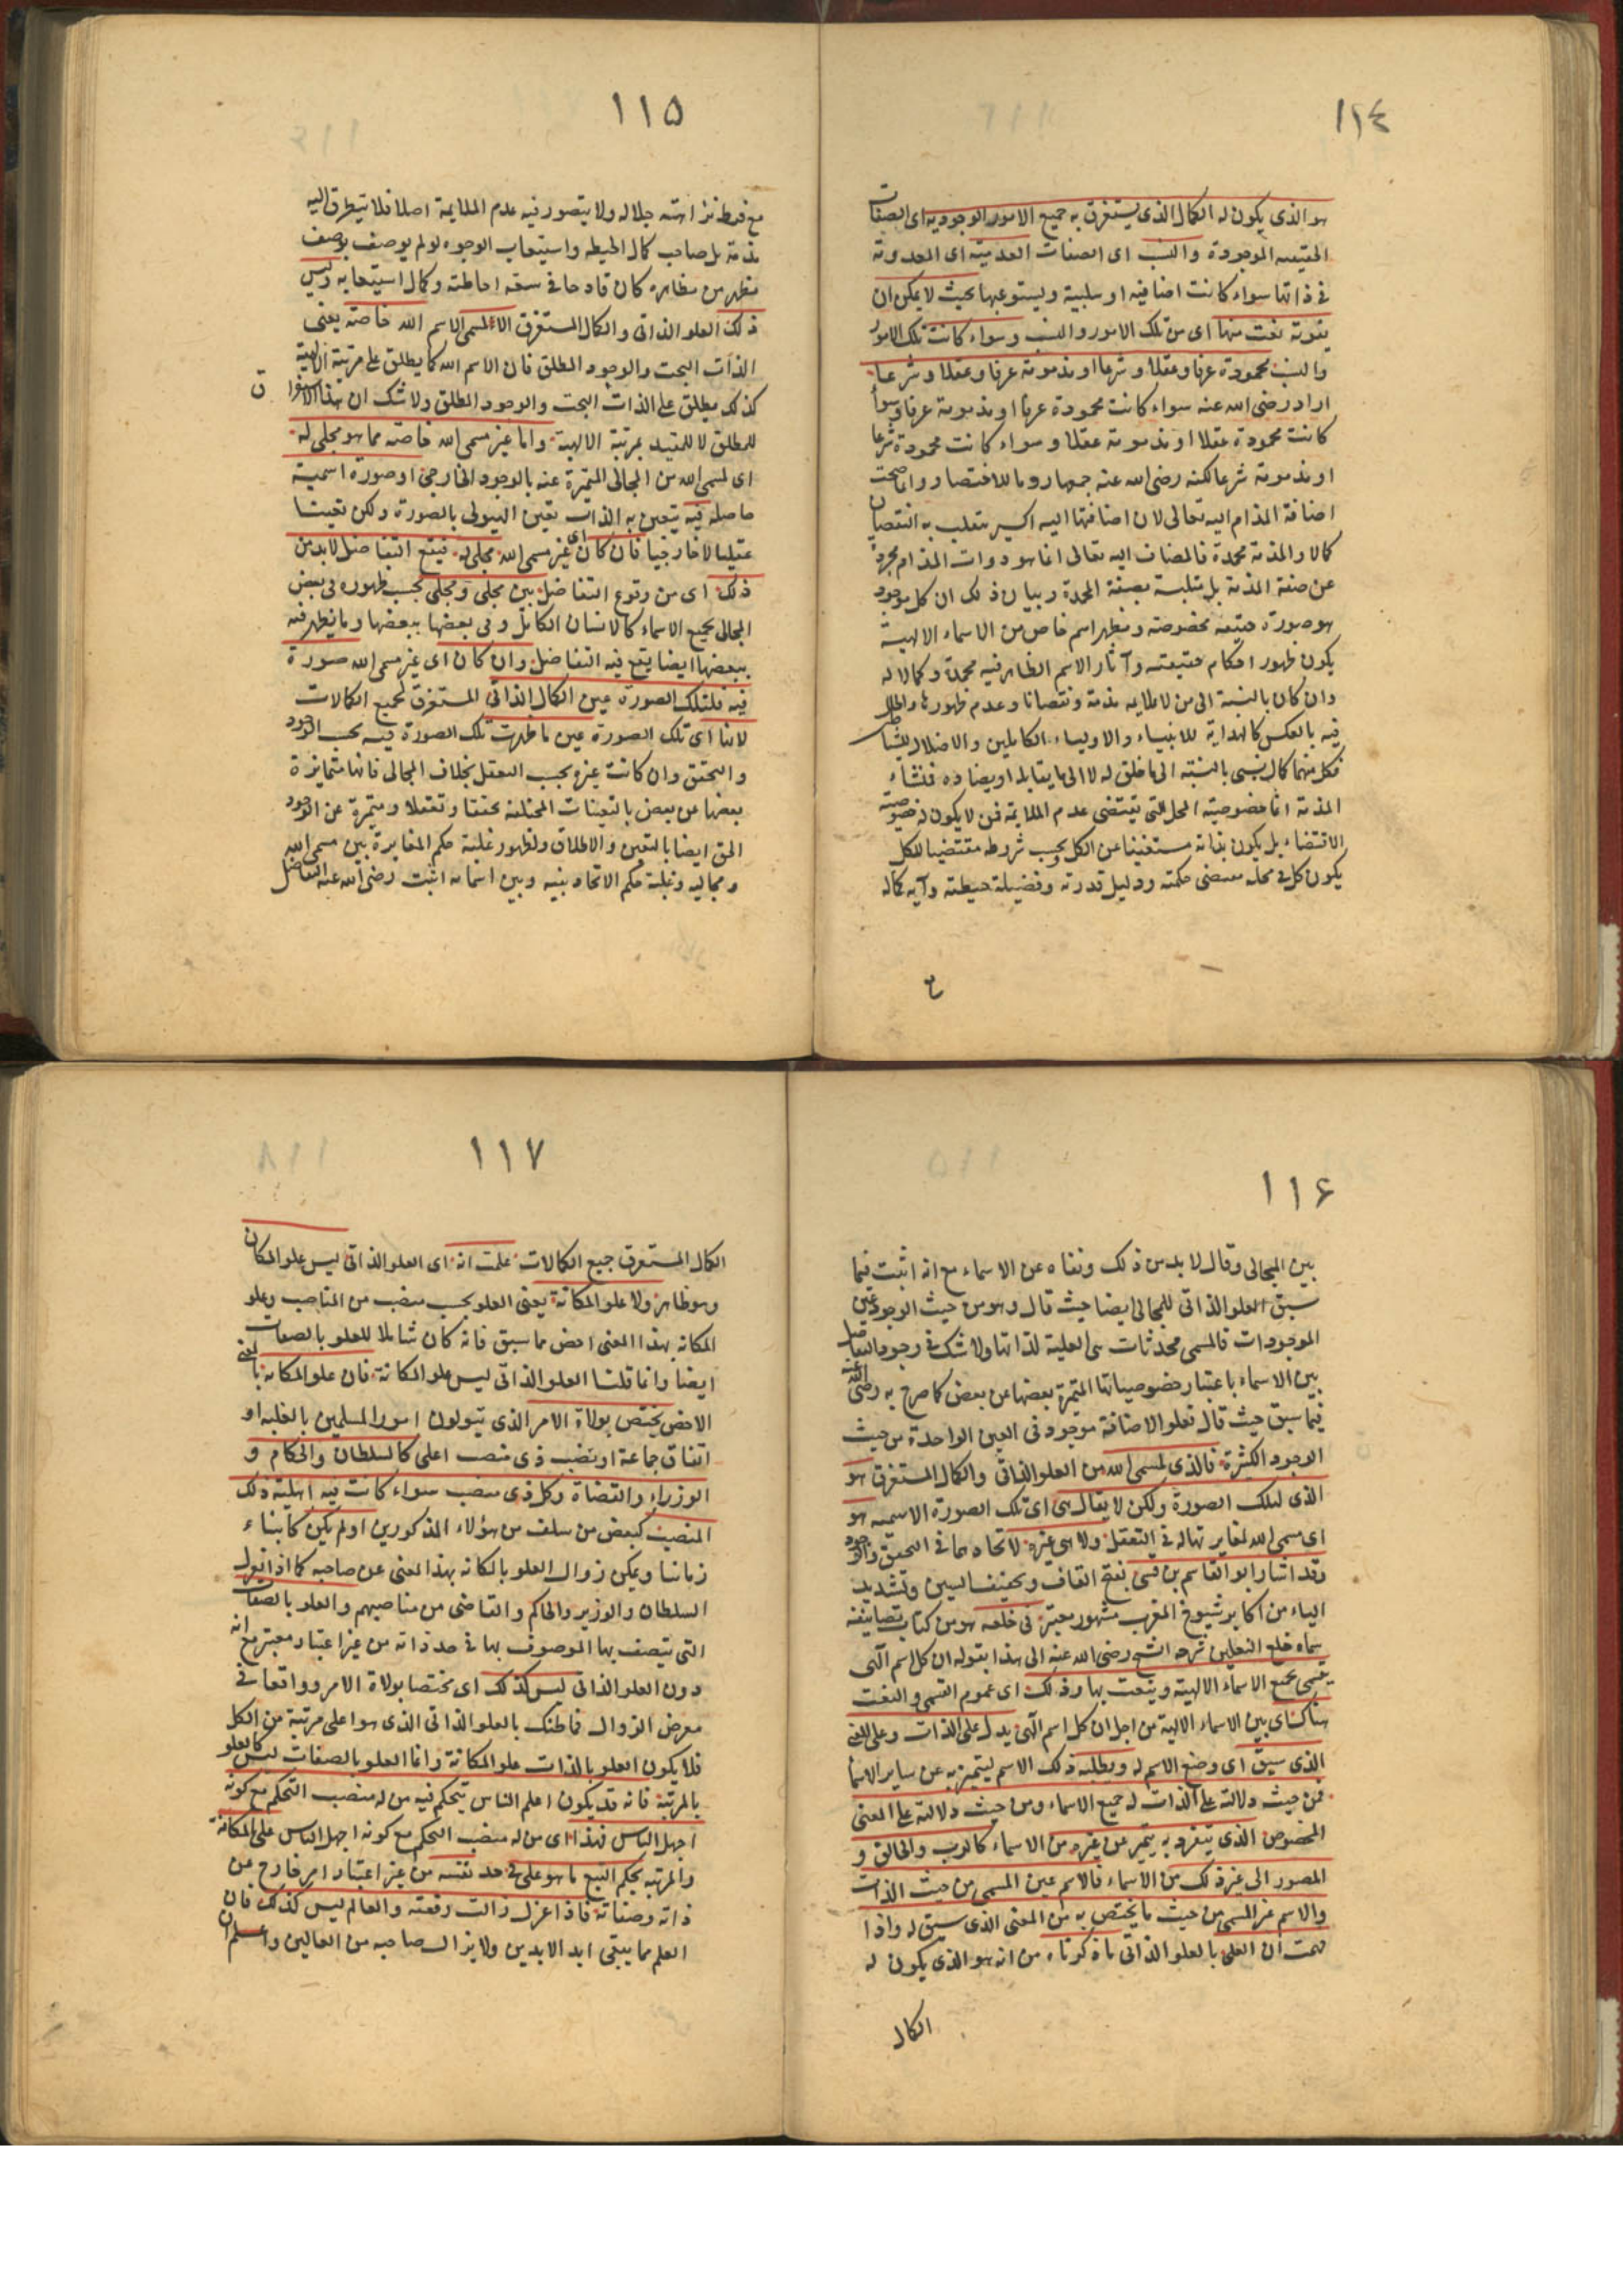 ١١٤
هو الذى يكون له الكمال الذى يستغرق به جميع الامور الوجودية اى الصفات
الحقيقيه الموجودة والنسب اى الصفات العدمية اى المعدومة
فى ذاتها سواء كانت اضافيه او سلبية ويستوعبها بحيث لا يمكن ان
يفوته نعت منها اى من تلك الامور والنسب وسواء كانت تلك الامور
والنسب محمودة عرفا وعقلا وشرعا او مذمومة عرفا وعقلا وشرعا
اراد رضى الله عنه سواء كانت محمودة عرفا او مذمومة عرفا وسواء
كانت محمودة عقلا او مذمومة عقلا وسواء كانت محمودة شرعا
او مذمومة شرعا لكنه رضى الله عنه جمعها روما للاختصار وانما صحت
اضافة المذام اليه تعالى لان اضافتها اليه اكسير ينقلب به النقصان
كمالا والمذمة محمدة فالمضاف اليه تعالى انما هو ذوات المذام مجردة
عن صفة المذمة بل متلبسة بصفة المحمدة وبيان ذلك ان كل موجود
هو صورة حقيقه مخصوصة ومظهر اسم خاص من الاسماء الالهية
يكون ظهور احكام حقيقته وآثار الاسم الظاهر فيه محمدة وكمالا له
وان كان بالنسبة الى من لا يلايمه مذمة ونقصانا وعدم ظهورها والحال
فيه بالعكس كالهداية للانبياء والاولياء الكاملين والاضلال للشياطين
فكل منهما كمال نسبى بالنسبة الى ما خلق له لا الى ما يقابله او يضاده فمنشاء
المذمة انما خصوصية المحل التى تقتضى عدم الملايمة فمن لا يكون له خصوصية
الاقتضاء بل يكون بذاته مستغنيا عن الكل وبحسب شروطه مقتضيا للكل
يكون كل فى محله مقتضى حكمته ودليل قدرته وفضيلة حيطته وآية كماله
١١٥
مع فرط نزاهته جلاله ولا يتصور فيه عدم الملايمة اصلا فلا يتطرق اليه
مذمة بل صاحب كمال الحيطه واستيعاب الوجوه لو لم يوصف بوصف
مظهر من مظاهره كان قادحا فى سعة احاطته وكمال استيعابه وليس
ذلك العلو الذاتى والكمال المستغرق الا لمسمى الاسم الله خاصة يعنى
الذات البحت والوجود المطلق فان الاسم الله كما يطلق على مرتبة الالهية
كذلك يطلق على الذات البحت والوجود المطلق ولا شك ان هذا الاستغراق
للمطلق لا للمقيد بمرتبة الالهية واما غير مسمى الله خاصة مما هو مجلى له
اى لمسمى الله من المجالى المتميزة عنه بالوجود الخارجى او صورة اسمية
حاصلة فيه يتعين به الذات تعين الهيولى بالصورة ولكن تعينا
عقليا لا خارجيا فان كان اى غير مسمى الله مجلى له فيقع التفاضل لا بد من
ذلك اى من وقوع التفاضل بين مجلى ومجلى بحسب ظهوره فى بعض
المجالى بجميع الاسماء كالانسان الكامل وفى بعضها ببعضها وما يظهر فيه
ببعضها ايضا يقع فيه التفاضل وان كان اى غير مسمى الله صورة
فيه فلتلك الصورة عين الكمال الذاتى المستغرق لجميع الكمالات
لانها اى تلك الصورة عين ما ظهرت تلك الصورة فيه بحسب الوجود
والتحقق وان كانت غيره بحسب التعقل بخلاف المجالى فانها متمايزة
بعضها عن بعض بالتعينات المختلفة تحققا وتعقلا ومتميزة عن الوجود
الحق ايضا بالتعين والاطلاق ولظهور غلبة حكم المغايرة بين مسمى الله
ومجاليه وغلبة حكم الاتحاد بينه وبين اسمائه اثبت رضى الله عنه التفاضل
١١٦
بين المجالى وقال لا بد من ذلك ونفاه عن الاسماء مع انه اثبت فيما
سبق العلو الذاتى للمجالى ايضا حيث قال وهو من حيث الوجود عين
الموجودات فالمسمى محدثات هى العلية لذاتها ولا شك فى وجود التفاضل
بين الاسماء باعتبار خصوصياتها المتميزة بعضها عن بعض كما صرح به رضى الله عنه
فيما سبق حيث قال فعلو الاضافة موجود فى العين الواحدة من حيث
الوجوه الكثيرة فالذى لمسمى الله من العلو الذاتى والكمال المستغرق هو
الذى لتلك الصورة ولكن لا يقال هى اى تلك الصورة الاسمية هو
اى مسمى الله لمغايرتها له فى التعقل ولا هى غيره لاتحادهما فى التحقق والوجود
وقد اشار ابو القاسم بن قسى بفتح القاف وتخفيف السين وتشديد
الياء من اكابر شيوخ المغرب مشهور معتبر فى خلعه هو من كتاب تصانيفه
سماه خلع النعلين شرحه الشيخ رضى الله عنه الى هذا بقوله ان كل اسم الهى
يتسمى بجميع الاسماء الالهية وينعت بها وذلك اى عموم التسمى والنعت
هناك اى بين الاسماء الالهية من اجل ان كل اسم الهى يدل على الذات وعلى المعنى
الذى سيق اى وضع الاسم له ويطلبه ذلك الاسم ليتميز به عن ساير الاسماء
فمن حيث دلالته على الذات له جميع الاسماء ومن حيث دلالته على المعنى
المخصوص الذى ينفرد به يتميز عن غيره من الاسماء كالرب والخالق و
المصور الى غير ذلك من الاسماء فالاسم عين المسمى من حيث الذات
والاسم غير المسمى من حيث ما يختص به من المعنى الذى سيق له واذا
فهمت ان العلى بالعلو الذاتى ما ذكرناه من انه هو الذى يكون له
الكمال
١١٧
الكمال المستغرق جميع الكمالات علمت انه اى العلو الذاتى ليس علو المكان
وهو ظاهر ولا علو المكانة يعنى العلو بحسب منصب من المناصب وعلو
المكانه بهذا المعنى اخص مما سبق فانه كان شاملا للعلو بالصفات
ايضا وانما قلنا العلو الذاتى ليس علو المكانة فان علو المكانه بالمعنى
الاخص يختص بولاة الامر الذى يتولون امور المسلمين بالغلبه او
اتفاق جماعة او بنصب ذى منصب اعلى كالسلطان والحكام و
الوزراء والقضاة وكل ذى منصب سواء كانت فيه اهلية ذلك
المنصب كبعض من سلف من هؤلاء المذكورين او لم يكن كابناء
زماننا ويمكن زوال العلو بالمكانه بهذا المعنى عن صاحبه كما اذا انعزل
السلطان والوزير والحاكم والقاضى من مناصبهم والعلو بالصفات
التى يتصف بها الموصوف بها فى حد ذاته من غير اعتبار معتبر مع انه
دون العلو الذاتى ليس كذلك اى مختصا بولاة الامر وواقعا فى
معرض الزوال فما ظنك بالعلو الذاتى الذى هو اعلى مرتبة من الكل
فلا يكون العلو بالذات علو المكانة وانما العلو بالصفات ليس كالعلو
بالمرتبة فانه قد يكون اعلم الناس يتحكم فيه من له منصب التحكم مع كونه
اجهل الناس فهذا اى من له منصب التحكم مع كونه اجهل الناس على المكانة
والمرتبه بحكم التبع ما هو على فى حد نفسه من غير اعتبار امر خارج عن
ذاته وصفاته فاذا عزل زالت رفعته والعالم ليس كذلك فان
العلم مما يبقى ابد الابدين ولا يزال صاحبه من العالين واعلم ان